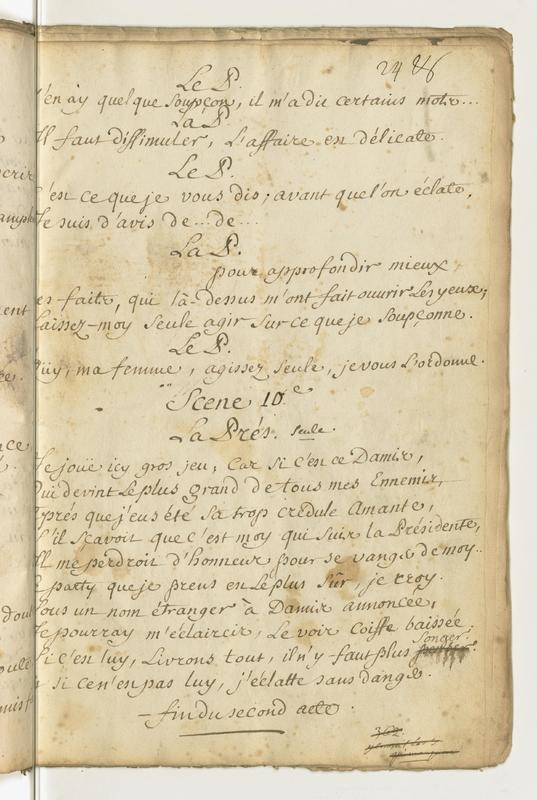 24
Le P.
J'en ay quelque soupçon, il m'a dit certains mots...
La P.
Il faut dissimuler, L'affaire en délicate.
Le P.
C'en ce que je vous dis; avant quel'on éclate,
Je suis d'avis de... de...
La P.
pour approfondir mieux
Les faits, qui là-dessus m'ont fait ouvrir Les yeux;
Laissez-moy seule agir sur ce que je soupçonne.
Le P.
Oüy, ma femme, agissez seule, je vous L'ordonne.
Scene 10.e
La Prés. seule.
Je joüe icy gros jeu, Car si c'en ce Damis,
Qui devint Le plus grand de tous mes Ennemis,
Aprés que j'eus été sa trop crédule Amante,
S'il sçavoit que c'est moy qui suis la Présidente,
Il me perdroit d'honneur pour se vanger de moy..
Le party que je prens en Le plus sûr, je croy.
Sous un nom étranger à Damis annoncée,
Je pourray m'éclaircir, Le voir Coiffe baissée;
Si c'en luy, Livrons tout, il n'y-faut plus songer.
si ce n'en pas luy, j'éclatte sans danger.
fin du second acte.
362